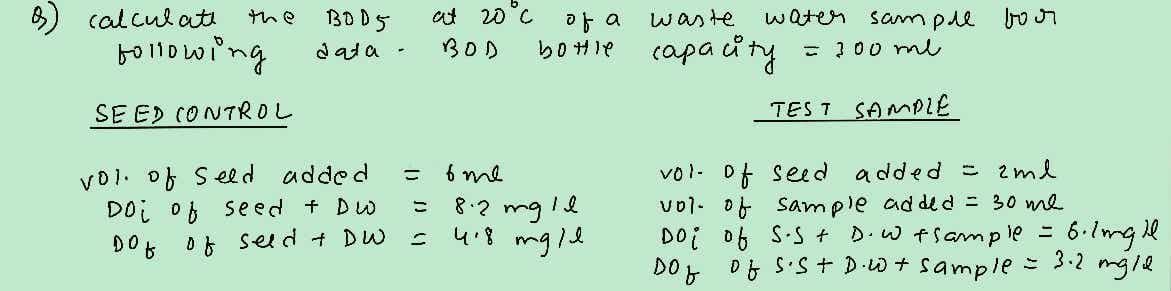 Q) calculate the BOD5 at 20°C of a waste water sample for
following data - BOD bottle capacity = 300 ml
SEED CONTROL
TEST SAMPLE
vol. of seed added = 6 ml
DOi of seed + DW = 8.2 mg/l
DOf of seed + DW = 4.8 mg/l
vol- of seed added = 2ml
vol- of sample added = 30 ml
DOi of S.S + D.W + sample = 6.1mg/l
DOf of S.S + D.W + sample = 3.2 mg/l